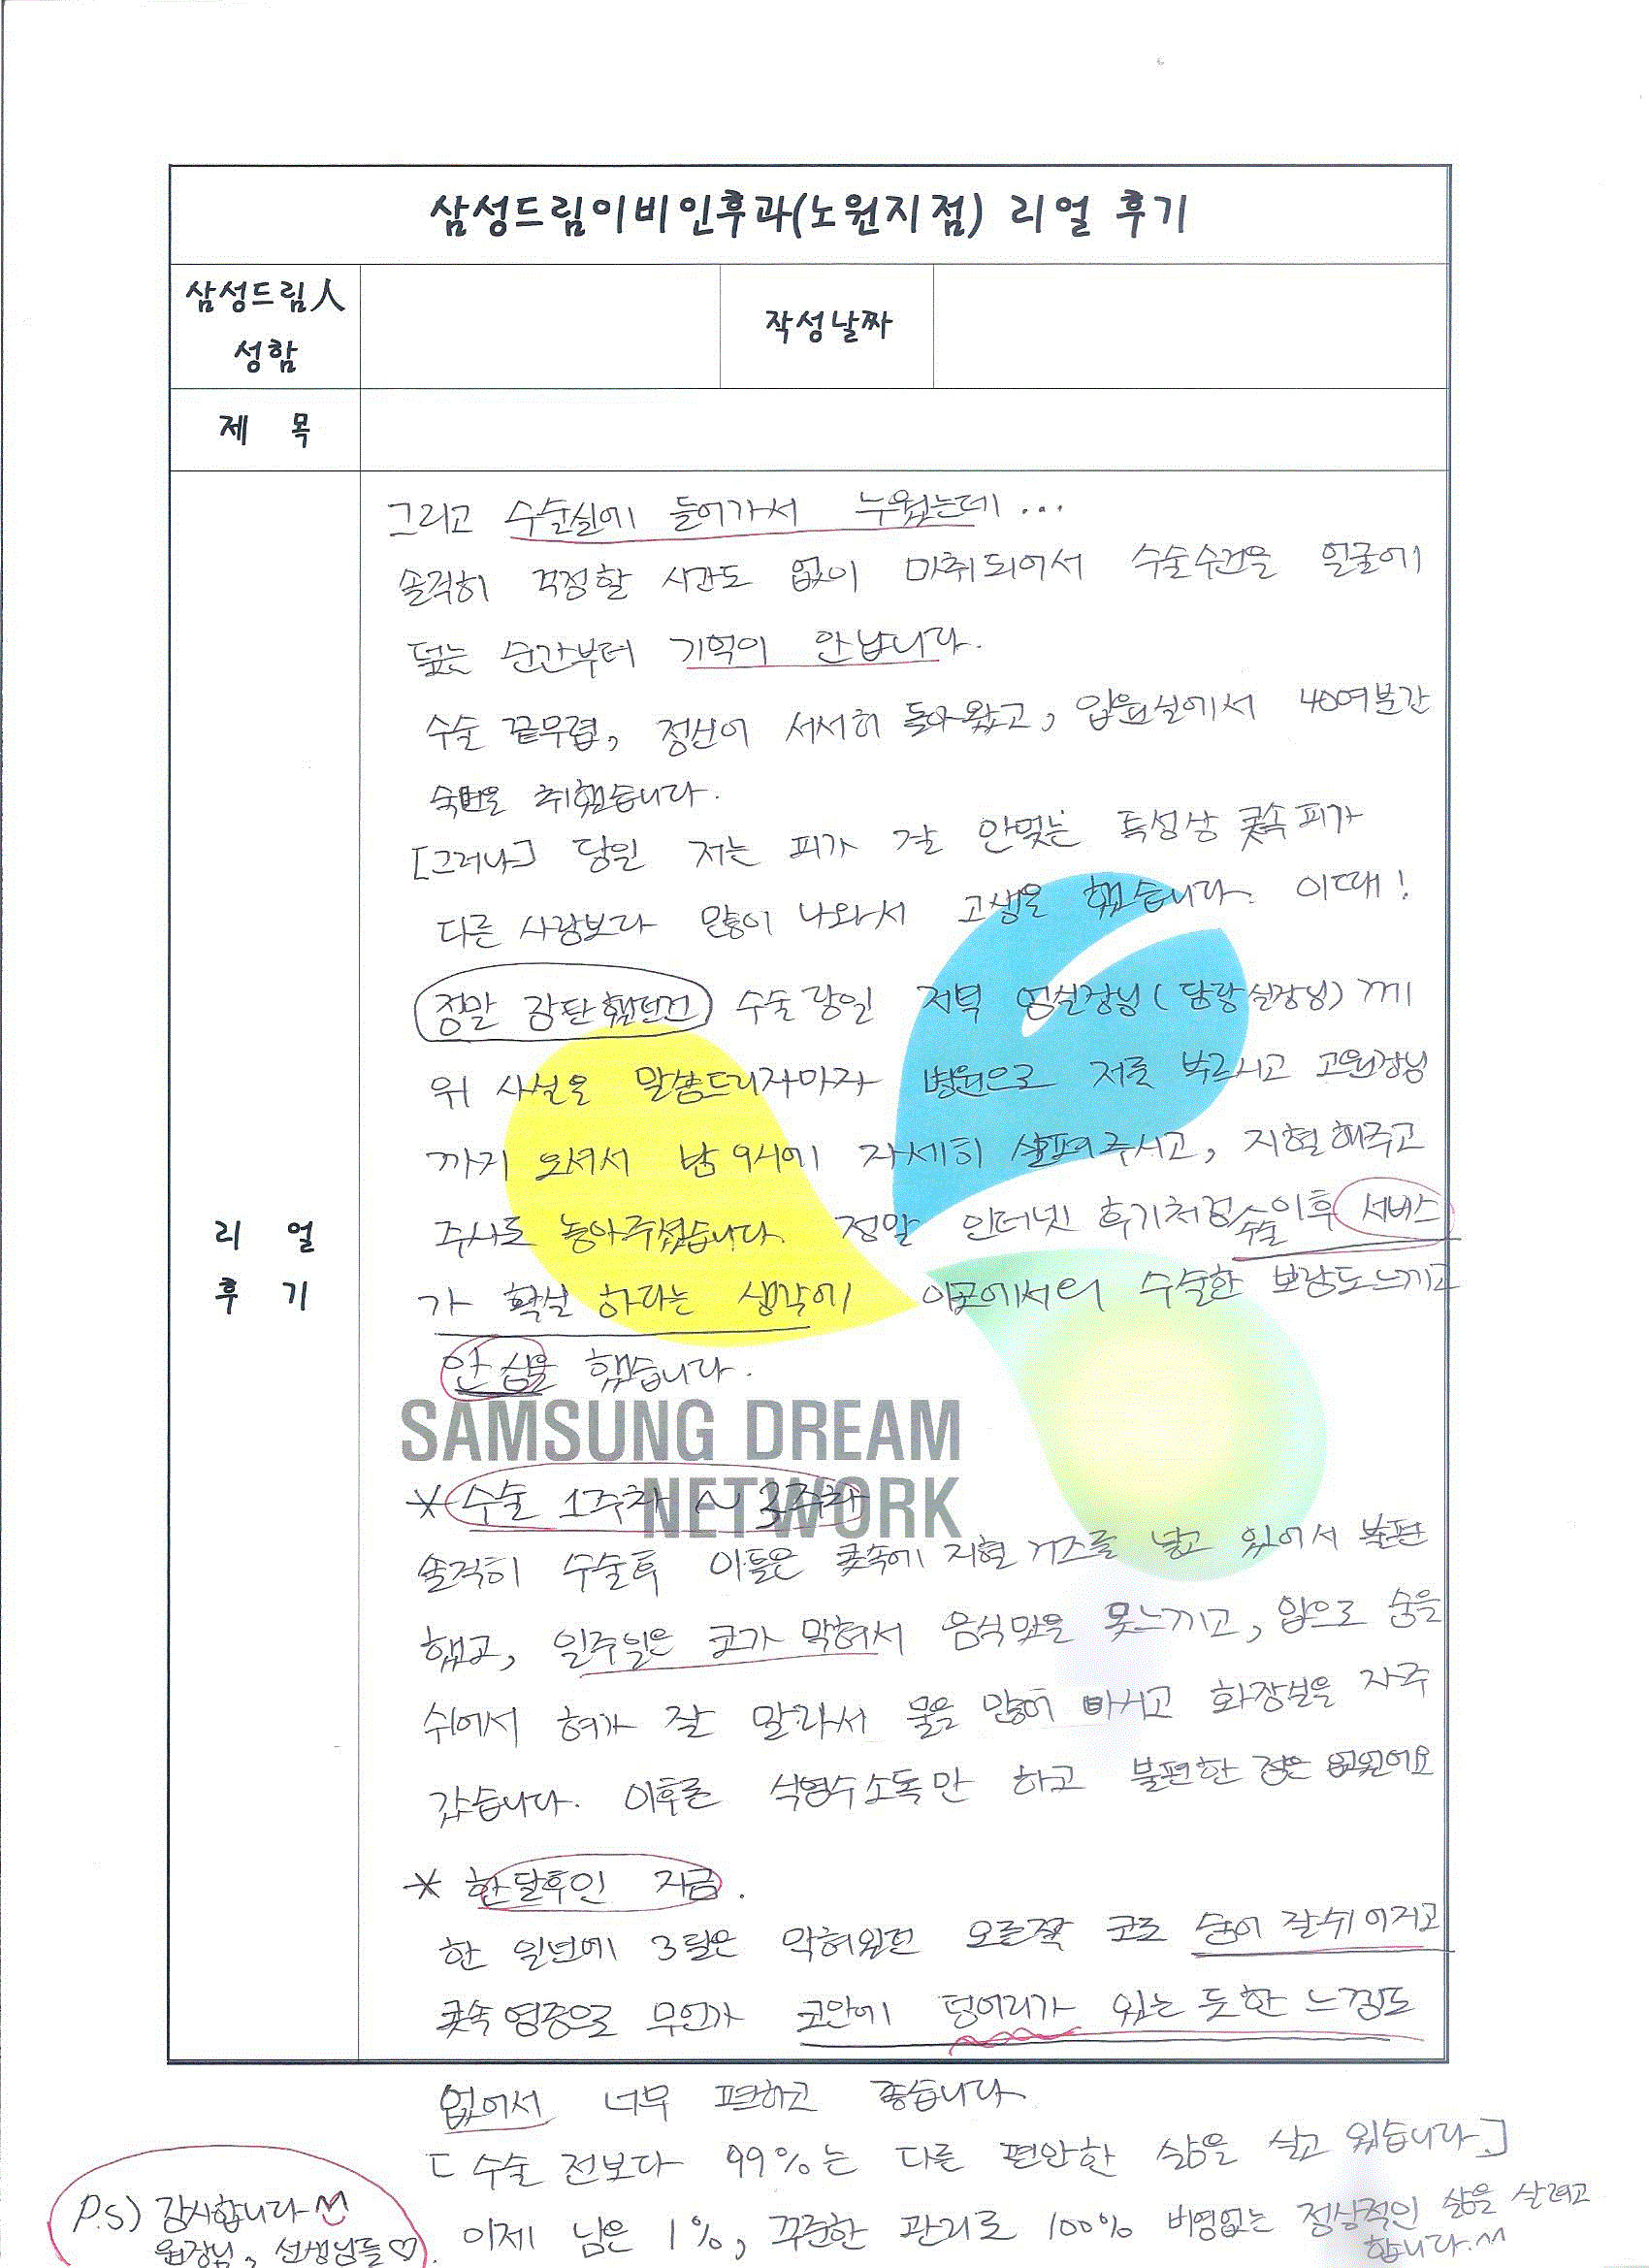 삼성드림이비인후과(노원지점) 리얼 후기
삼성드림人
성함
작성날짜
제 목
리 얼
후 기
그리고 수술실에 들어가서 누웠는데...
솔직히 걱정할 시간도 없이 마취되어서 수술수건을 얼굴에
덮는 순간부터 기억이 안납니다.
수술 끝무렵, 정신이 서서히 돌아왔고, 입원실에서 40여분간
숙면을 취했습니다.
[그러나] 당일 저는 피가 잘 안멎는 특성상 콧속 피가
다른 사람보다 많이 나와서 고생을 했습니다. 이때!
정말 감탄했던건 수술 당일 저녁 엄실장님(담당실장님)께
위 사실을 말씀드리자마자 병원으로 저를 부르시고 고원장님
까지 오셔서 밤 9시에 자세히 살펴주시고, 지혈해주고
주사도 놓아주셨습니다. 정말 인터넷 후기처럼 수술이후 서비스
가 확실하다는 생각에 이곳에서의 수술한 보람도 느끼고
안심을 했습니다.
SAMSUNG DREAM
NETWORK
* 수술 1주차 ~ 3주차
솔직히 수술후 이틀은 콧속에 지혈 거즈를 넣고 있어서 불편
했고, 일주일은 코가 막혀서 음식맛을 못느끼고, 입으로 숨을
쉬어서 혀가 잘 말라서 물을 많이 마시고 화장실을 자주
갔습니다. 이후론 식염수소독만 하고 불편한 점은 없었어요
* 한달후인 지금.
한 일년에 3달은 막혀있던 오른쪽 코로 숨이 잘쉬어지고
콧속 염증으로 무언가 코안에 덩어리가 있는 듯한 느낌도
없어서 너무 편하고 좋습니다
[수술 전보다 99%는 다른 편안한 삶을 살고 있습니다.]
이제 남은 1%, 꾸준한 관리로 100% 비염없는 정상적인 삶을 살려고
합니다.^^
P.S) 감사합니다^^
원장님, 선생님들♡.